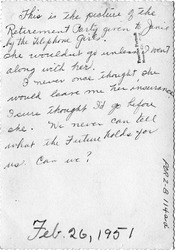 This is the picture of the
Retirement Party given to Janie
by the Telephone Girls.
She wouldn't go unless I went
along with her.
I never once thought she
would leave me her insurance
I sure thought I'd go before
she. We never can tell
what the Future holds for
us. Can we?
Feb. 26, 1951